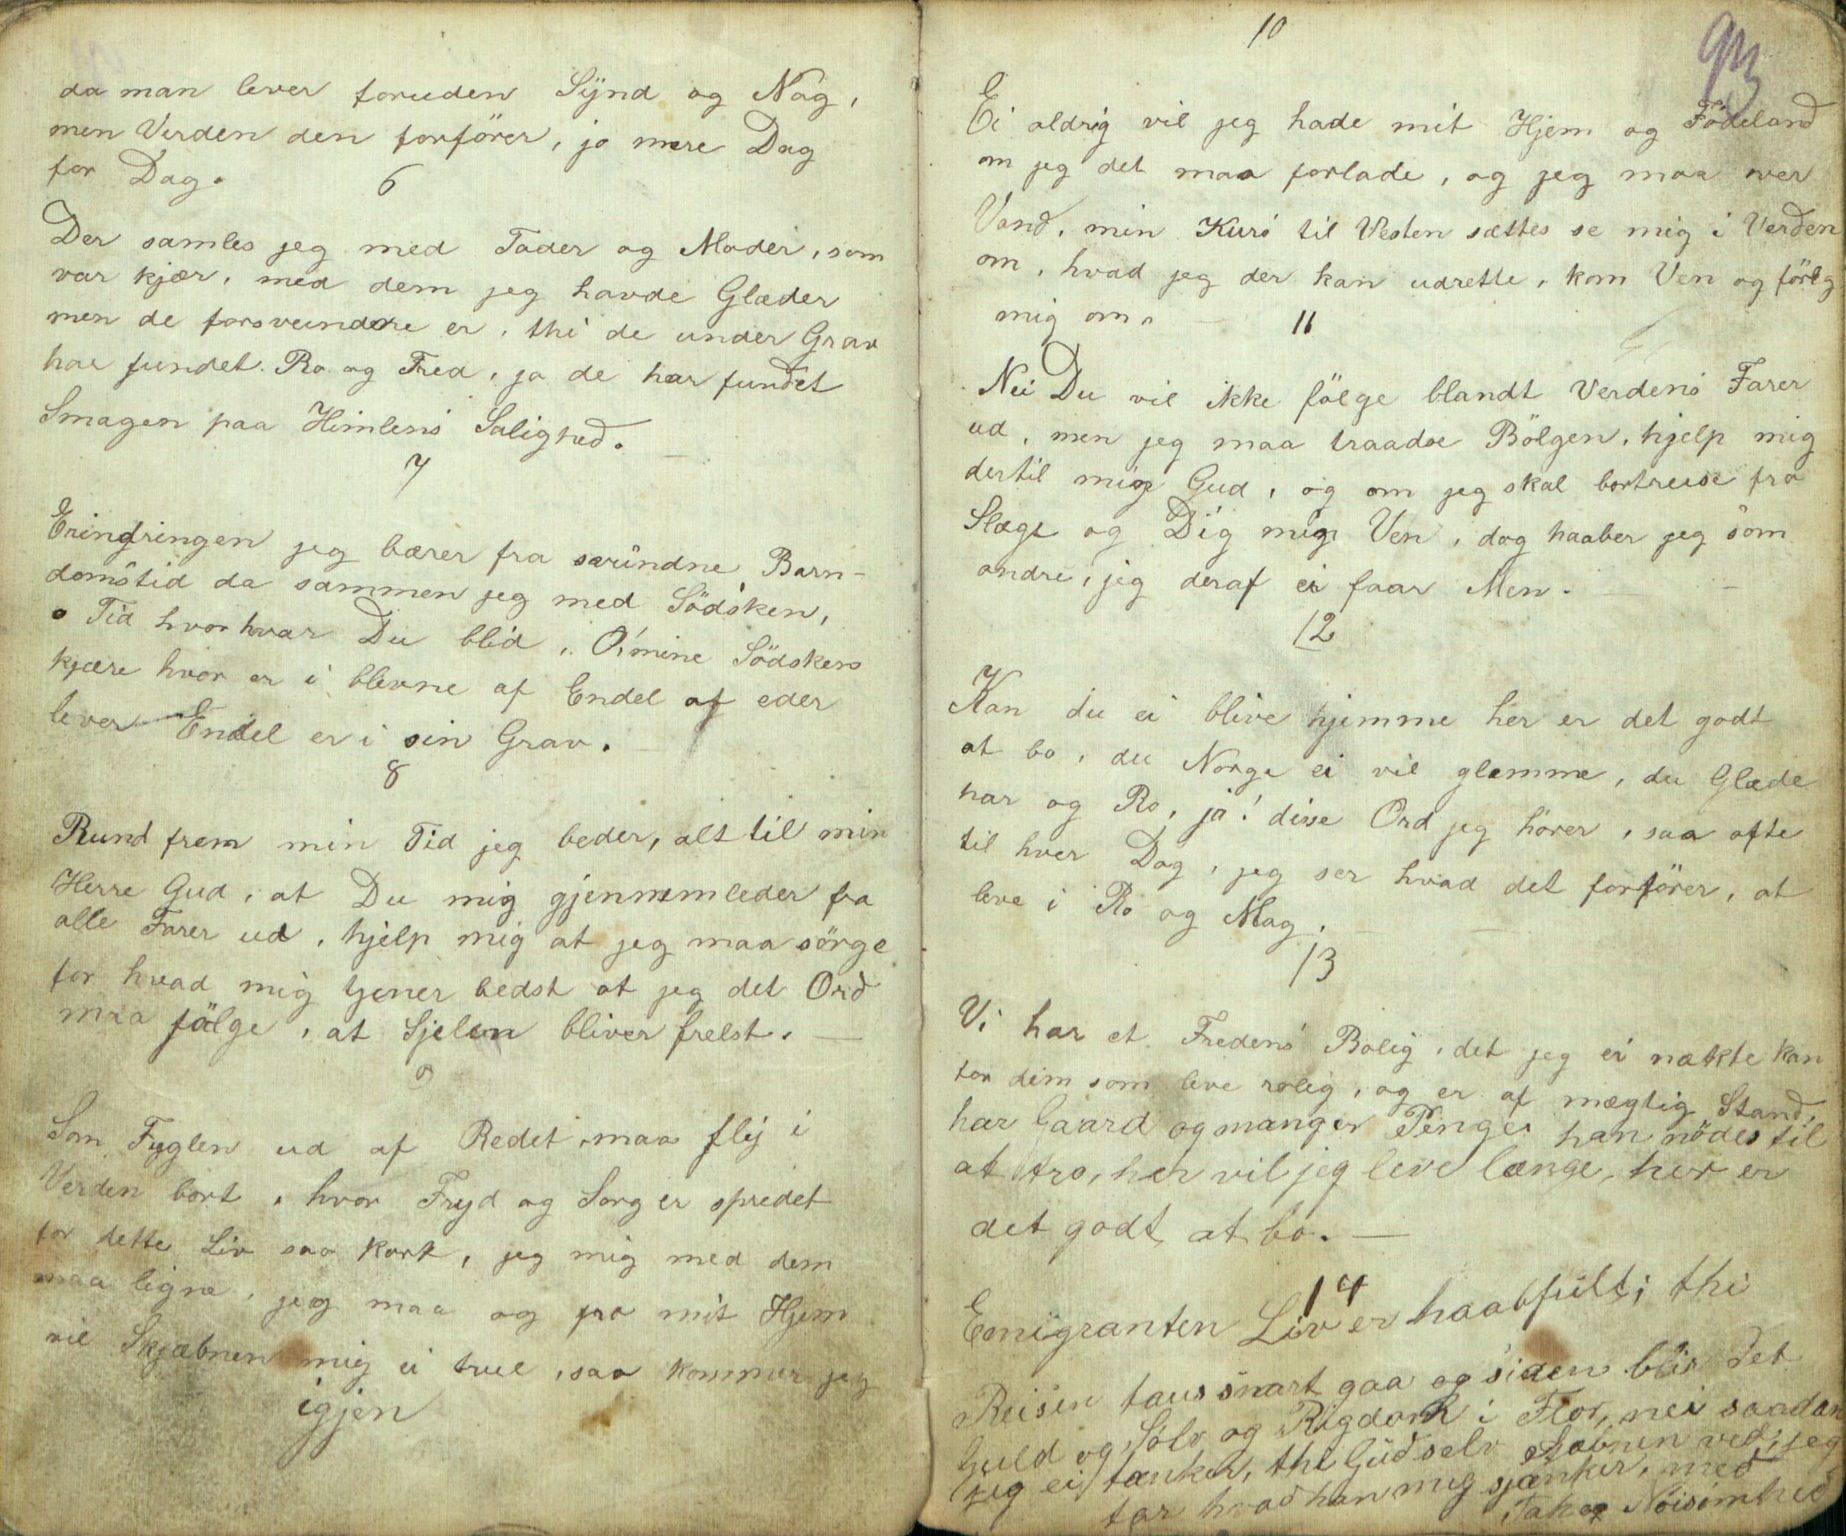 da man lever foruden Synd og Nag,
men Verden den forförer, jo mere Dag
for Dag.
6
Der samles jeg med Fader og Moder, som
var kjær, med dem jeg havde Glæder
men de forsvundne er, thi de under Grav
har fundet Ro og Fred, ja de har fundet
Smagen paa Himlens Salighed.
7
Erindringen jeg bærer fra Barn-
domstid da sammen jeg med Södsken,
o Tid hvor hvar Du blid, O, mine Södskens
kjære hvor er i blevne af Endel af eder
lever Endel er i sin Grav.
8
Rund frem min Tid jeg beder, alt til min
Herre Gud, at Du mig gjennmmleder fra
alle Farer ud, hjelp mig at jeg maa sörge
for hvad mig tjener bedst at jeg det Ord
maa fölge, at Sjelen bliver frelst.
9
Som Fuglen ud af Redet maa flÿ i
Verden bort, hvor Fryd og Sorg er spredet
for dette Liv saa kort, jeg mig med dem
maa ligne, jeg maa og fra mit Hjem
vil Skjæbnen mig ei true, saa kommer jeg
igjen
10
93
Ei aldrig vil jeg hade mit Hjem og Födeland
om jeg det maa forlade, og jeg maa over
Vand, min Kurs til Vesten sættes se mig i Verden
om, hvad jeg der kan udrette, kom Ven og fölg
mig om.
11
Nei Du vil ikke fölge blandt Verdens Farer
ud, men jeg maa traade Bölgen, hjelp mig
dertil min Gud, og om jeg skal bortreise fra
Slægt og Dig min Ven, dog haaber jeg som
andre, jeg deraf ei faar Men.
12
Kan du ei blive hjemme her er det godt
at bo, du Norge ei vil glemme, du Glæde
har og Ro, ja! disse Ord jeg hörer, saa ofte
til hver Dag, jeg ser hvad det forförer, at
leve i Ro og Mag.
13
Vi har et Fredens Bolig, det jeg ei nækte kan
for dem som leve rolig, og er af mægtig Stand,
har Gaard og manger Penge han nödes til
at tro, her vil jeg leve længe, her er
det godt at bo.
14
Emigranten Liv er haabfult; thi
Reisen snart gaa og siden blir det
Guld og Sölv og Rigdom i Flor, nei saadan
jeg ei tænker, thi Gud selv ved, jeg
tar hvad han mig sjænker, med
Tak og Nöisomhed